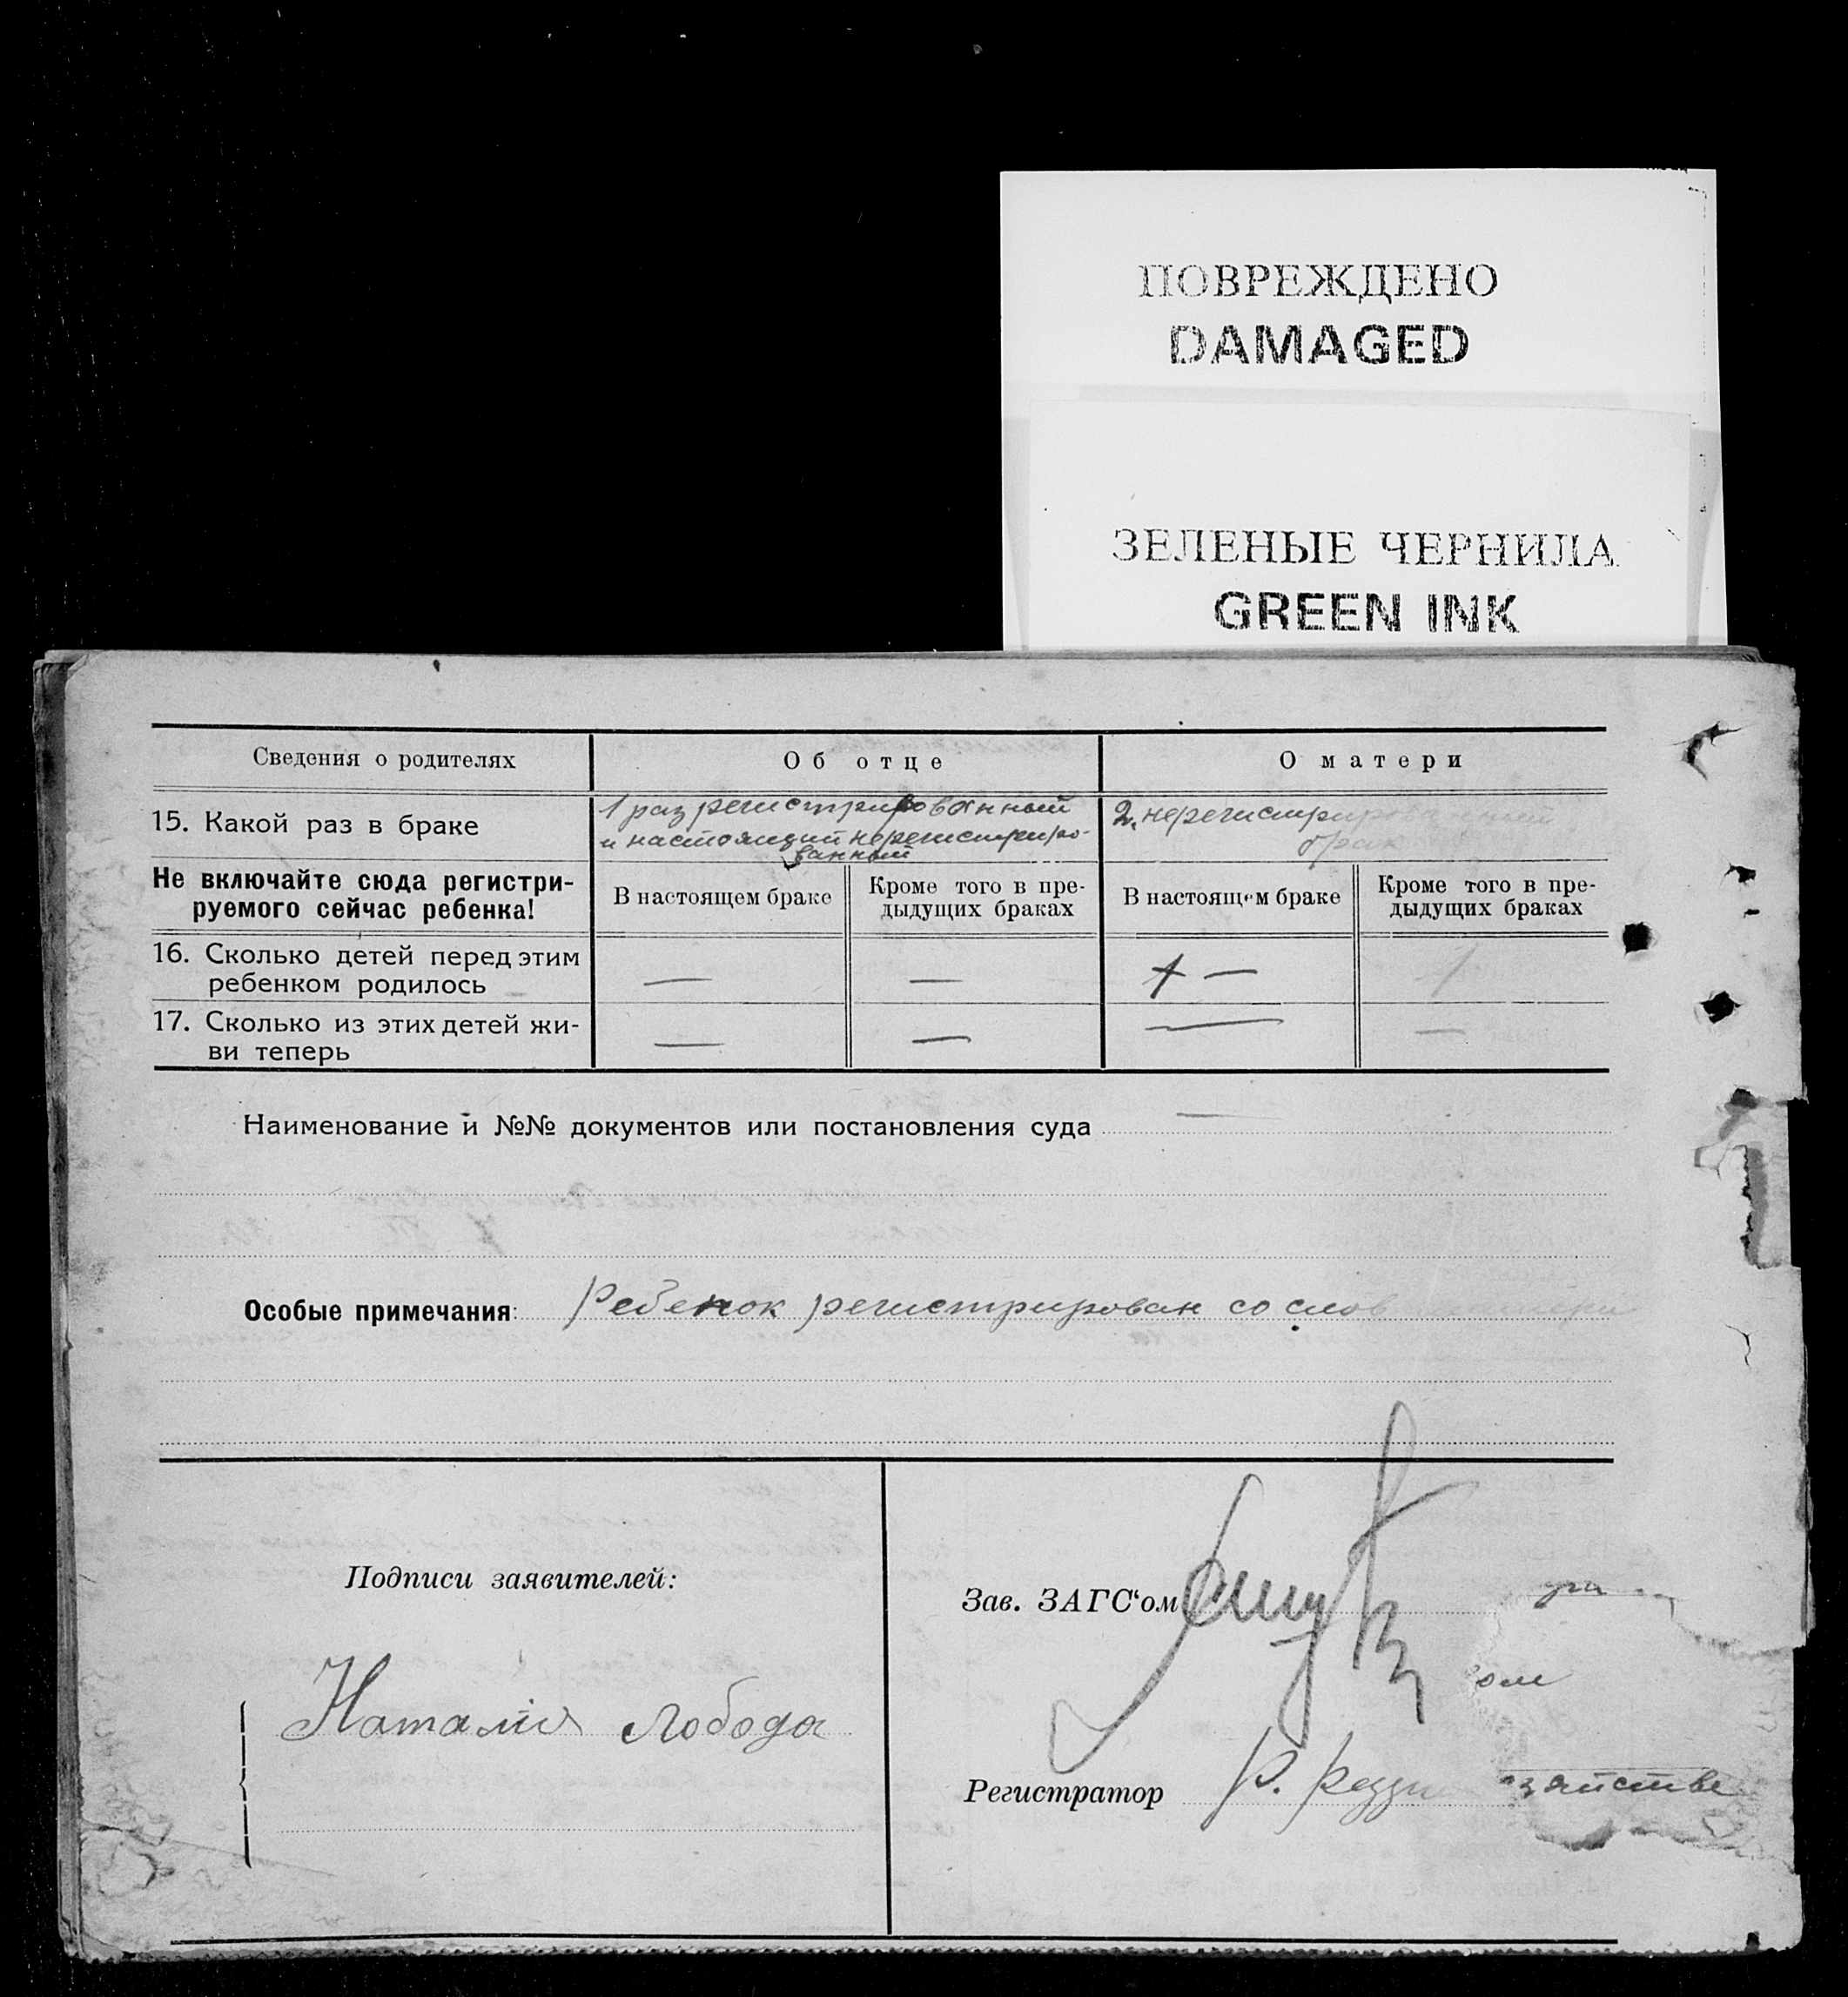 ПОВРЕЖДЕНО
DAMAGED
ЗЕЛЕНЫЕ ЧЕРНИЛА
GREEN INK
Сведения о родителях
Об отце
О матери
15. Какой раз в браке
1 раз регистрированный
и настоящий нерегистриро-
ванный
2. нерегистрированный
брак
Не включайте сюда регистри-
руемого сейчас ребенка!
В настоящем браке
Кроме того в пре-
дыдущих браках
В настоящем браке
Кроме того в пре-
дыдущих браках
16. Сколько детей перед этим
ребенком родилось
— — —
1
17. Сколько из этих детей жи-
ви теперь
— — — —
Наименование и №№ документов или постановления суда —
Особые примечания: Ребенок регистрирован со слов матери
Подписи заявителей:
Наталія Лобода
Зав. ЗАГС‘ом
Регистратор Р.